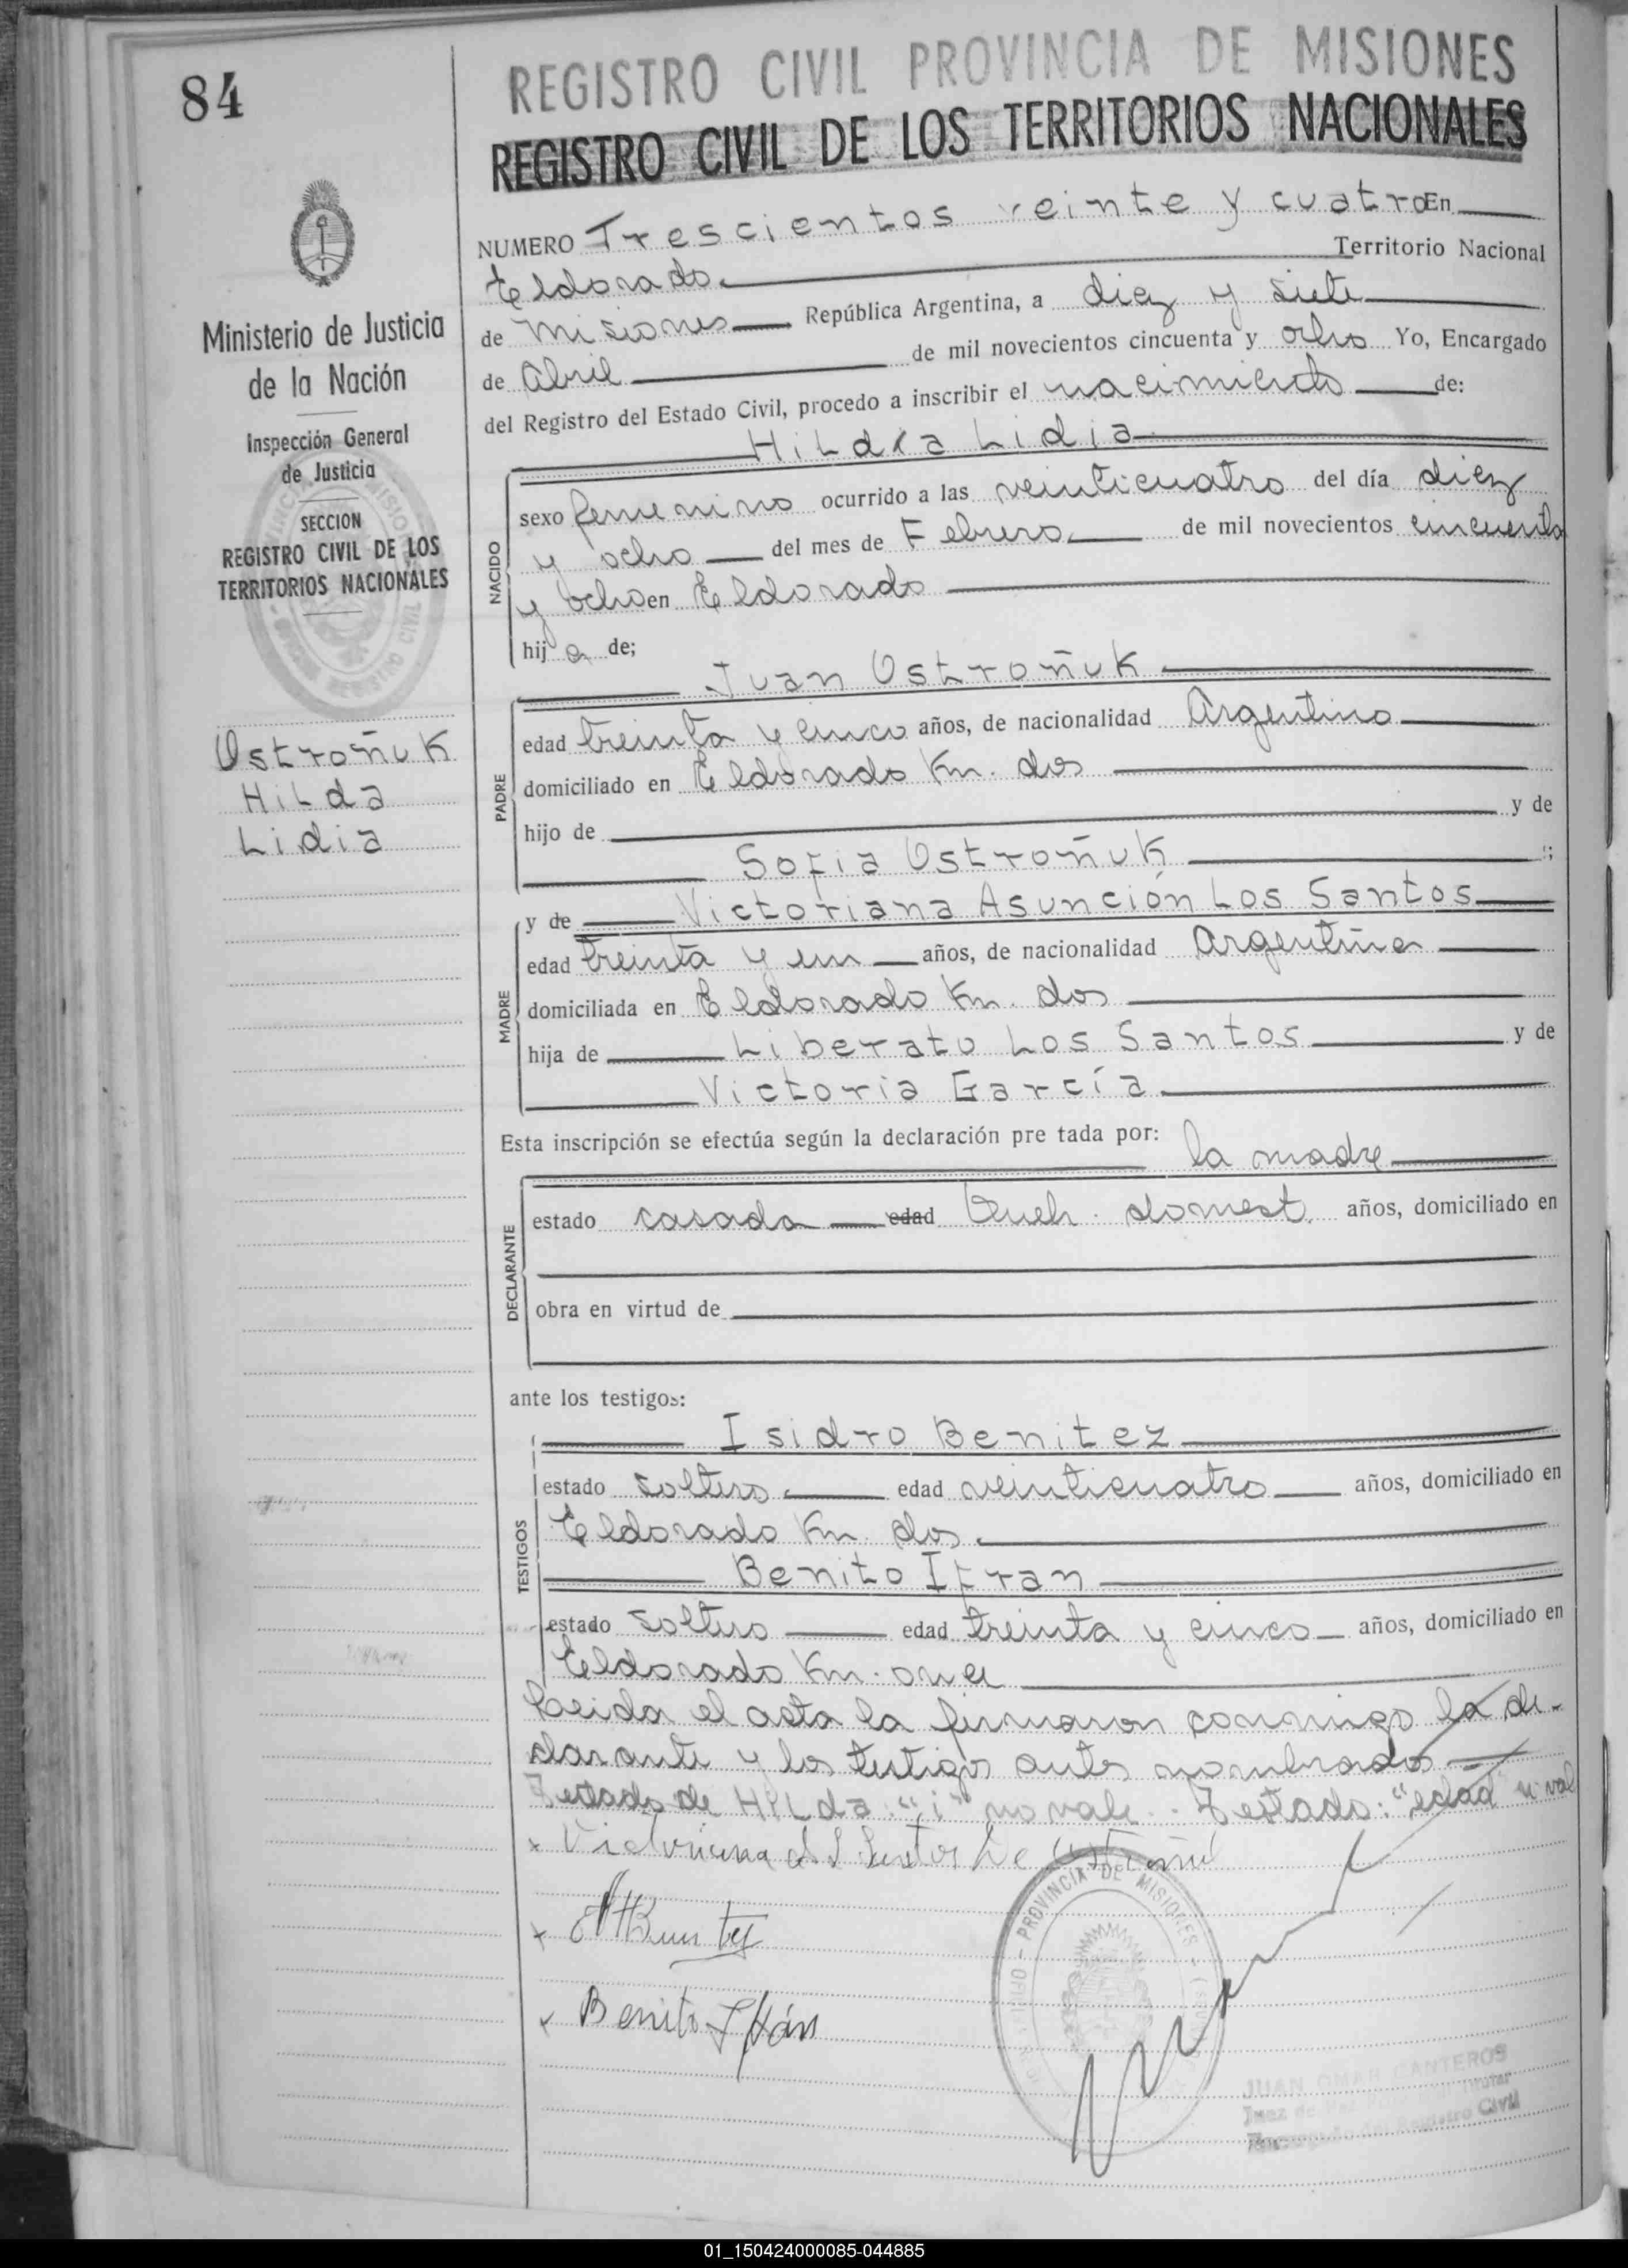 84
REGISTRO CIVIL PROVINCIA DE MISIONES
REGISTRO CIVIL DE LOS TERRITORIOS NACIONALES
Ministerio de Justicia
de la Nación
Inspección General
de Justicia
SECCION
REGISTRO CIVIL DE LOS
TERRITORIOS NACIONALES
Ostroñuk
Hilda
Lidia
NUMERO Trescientos veinte y cuatro En
Eldorado Territorio Nacional
de Misiones República Argentina, a diez y siete
de Abril de mil novecientos cincuenta y ocho Yo, Encargado
del Registro del Estado Civil, procedo a inscribir el nacimiento de:
Hilda Lidia
NACIDO
sexo femenino ocurrido a las veinticuatro del día diez
y ocho del mes de Febrero de mil novecientos cincuenta
y ocho en Eldorado
hija de;
Juan Ostroñuk
PADRE
edad treinta y cinco años, de nacionalidad Argentino
domiciliado en Eldorado Km. dos
hijo de y de
Sofia Ostroñuk
y de Victoriana Asunción Los Santos
MADRE
edad treinta y un años, de nacionalidad Argentina
domiciliada en Eldorado Km. dos
hija de Liberato Los Santos y de
Victoria García
Esta inscripción se efectúa según la declaración pre tada por:
la madre
DECLARANTE
estado casada edad Queh. domest. años, domiciliado en
obra en virtud de
ante los testigos:
Isidro Benitez
TESTIGOS
estado soltero edad veinticuatro años, domiciliado en
Eldorado Km. dos
Benito Ifran
estado soltero edad treinta y cinco años, domiciliado en
Eldorado Km. once
Leida el acta la firmaron conmigo la de-
clarante y los testigos antes nombrados
Testado de Hilda: "i" no vale. Testado: "edad" n val
Benito Ifrán
PROVINCIA DE MISIONES
JUAN OMAR CANTEROS
Juez de Paz
Encargado del Registro Civil
01_150424000085-044885